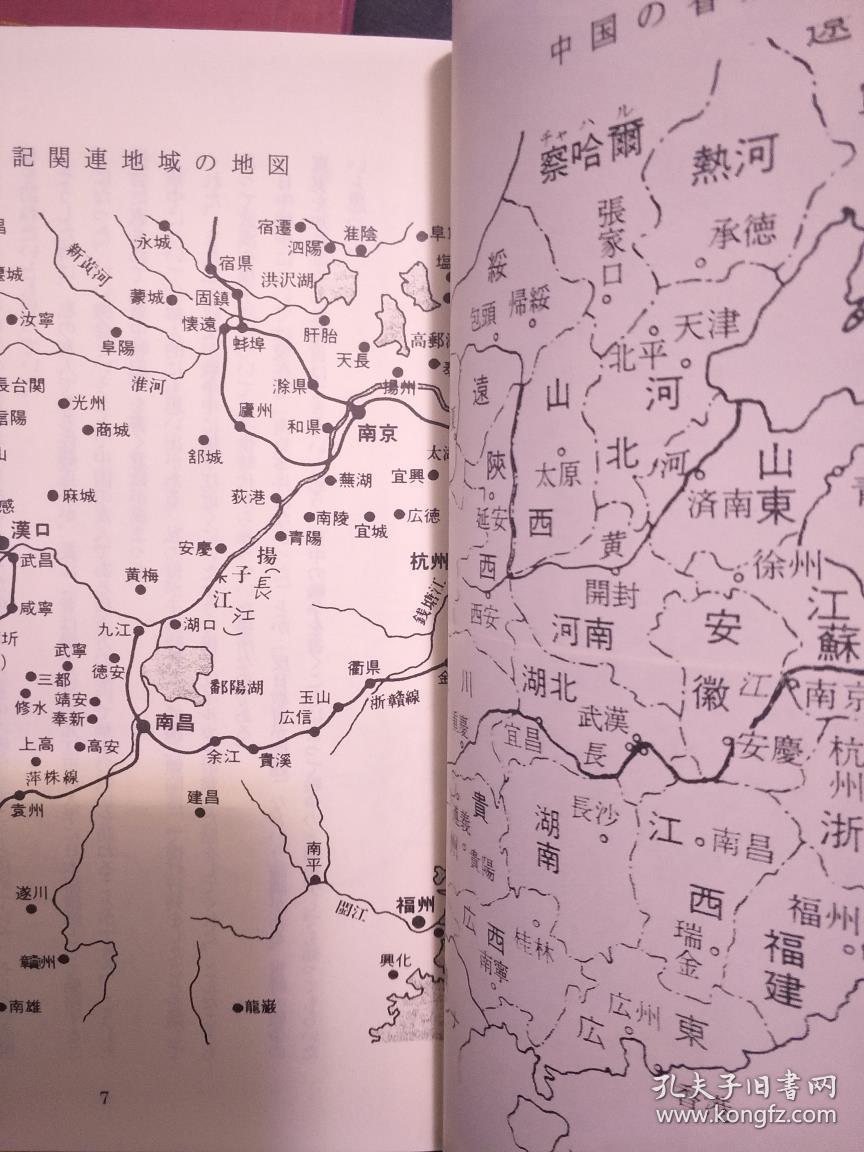 記関連地域の地図
永城
宿遷
泗陽
淮陰
新黄河
宿県
洪沢湖
蒙城
固鎮
汝寧
懐遠
蚌埠
盱眙
高郵
阜陽
天長
淮河
滁県
揚州
長台関
光州
廬州
和県
南京
信陽
商城
舒城
蕪湖
宜興
麻城
荻港
南陵
宜城
広徳
漢口
青陽
安慶
揚
子
江
(長江)
杭州
武昌
黄梅
銭塘江
咸寧
九江
湖口
武寧
徳安
三都
鄱陽湖
衢県
靖安
玉山
浙贛線
修水
奉新
南昌
広信
上高
高安
余江
貴溪
萍株線
袁州
建昌
南平
遂川
閩江
福州
贛州
興化
南雄
龍巌
7
中国の省
チャハル
察哈爾
熱河
張家口
承徳
綏
包頭
帰綏
天津
北平
遠
山
河
陝
太原
北
河
山
済南
東
延安
西
黄
徐州
西
開封
江
西安
河南
安
蘇
川
湖北
徽
江
南京
重慶
武漢
宜昌
長
安慶
杭州
貴
湖
長沙
江
南昌
浙
遵義
南
州
貴陽
西
福州
広
西
桂林
瑞金
福
南寧
建
広州
広
東
香港
孔夫子旧书网
www.kongfz.com